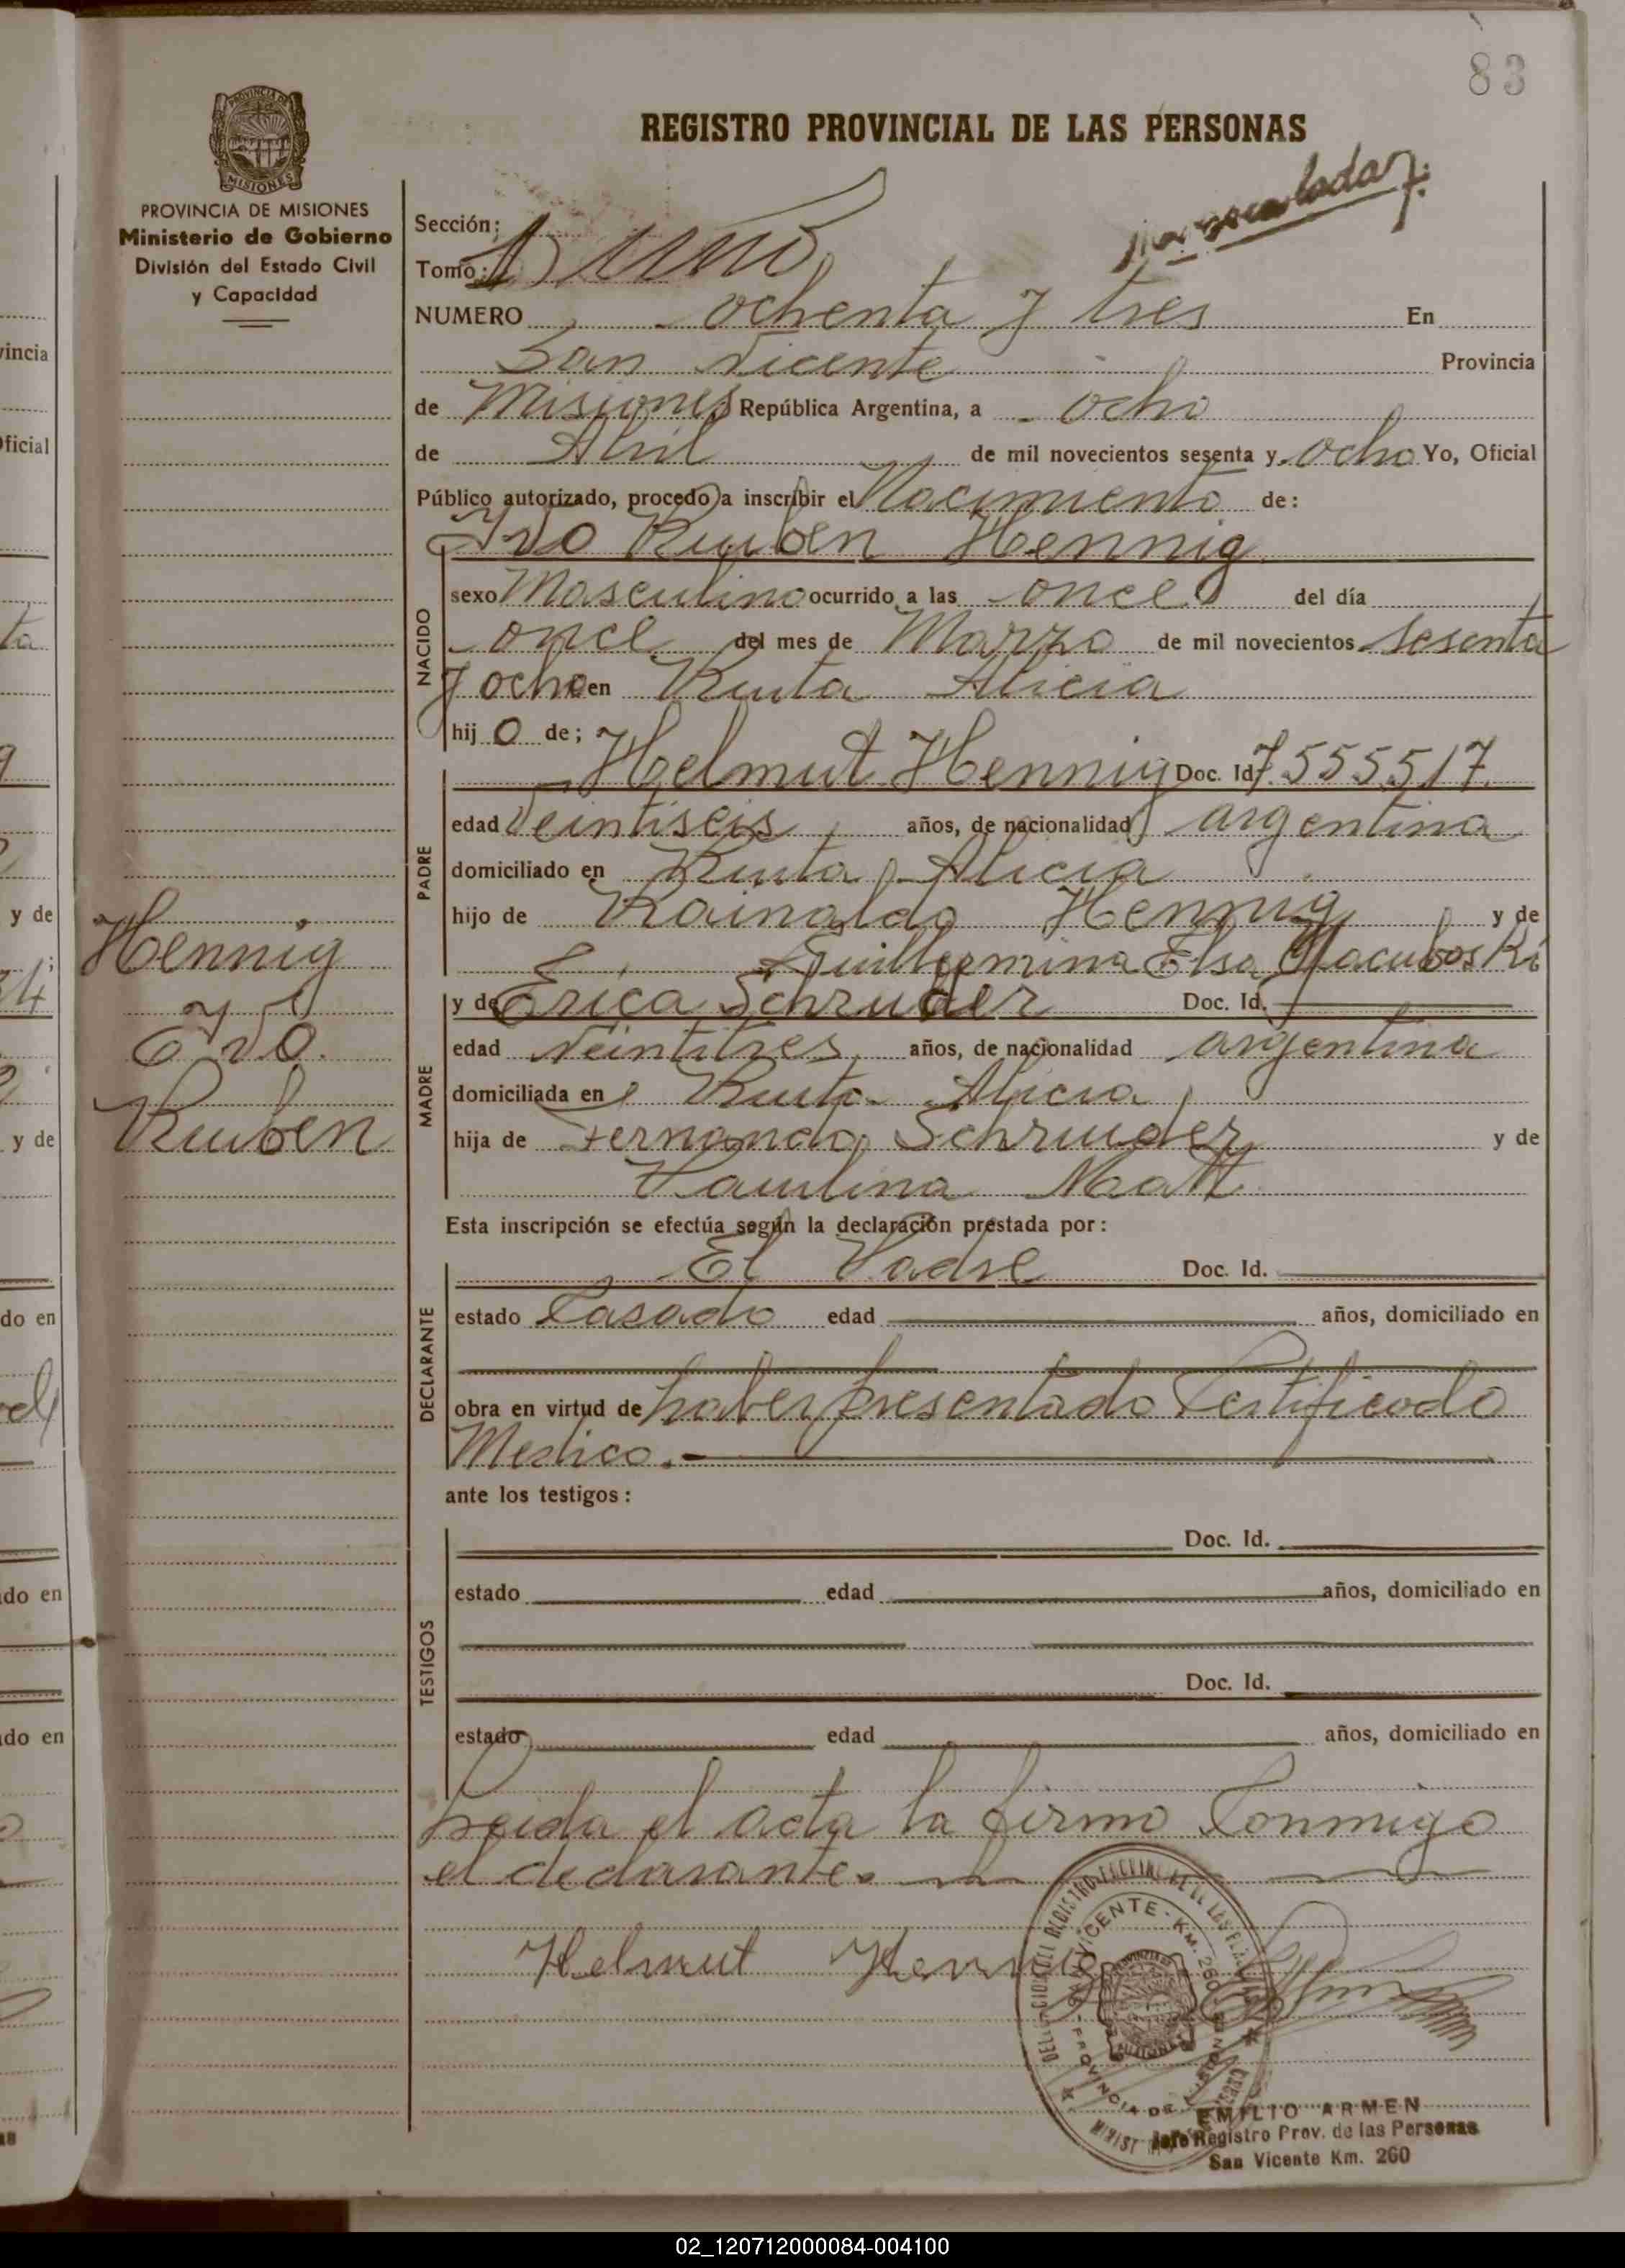 83
REGISTRO PROVINCIAL DE LAS PERSONAS
PROVINCIA DE MISIONES
Ministerio de Gobierno
División del Estado Civil
y Capacidad
Sección:
Tomo: Uno
NUMERO ochenta y tres En
San Vicente Provincia
de Misiones República Argentina, a ocho
de Abril de mil novecientos sesenta y ocho Yo, Oficial
Público autorizado, procedo a inscribir el Nacimiento de:
Ivo Ruben Hennig
NACIDO
sexo Masculino ocurrido a las once del día
once del mes de Marzo de mil novecientos sesenta
y ocho en Ruta Alicia
hij o de;
PADRE
Helmut Hennig Doc. Id. 7.555.517
edad Veintiseis años, de nacionalidad argentina
domiciliado en Ruta Alicia
hijo de Rainaldo Hennig y de
Guillermina Elsa Jacuboski
MADRE
y de Erica Schruder Doc. Id.
edad Veintitres años, de nacionalidad argentina
domiciliada en Ruta Alicia
hija de Fernando Schruder y de
Paulina Matt
Hennig
Ivo
Ruben
Esta inscripción se efectúa según la declaración prestada por:
DECLARANTE
El Padre Doc. Id.
estado Casado edad años, domiciliado en
obra en virtud de haber presentado Certificado
Medico.-
ante los testigos:
TESTIGOS
Doc. Id.
estado edad años, domiciliado en
Doc. Id.
estado edad años, domiciliado en
Leida el acta la firmo Conmigo
el declarante.
Helmut Hennig
VICENTE - KM. 260
PROVINCIA DE
EMILIO ARMEN
Jefe Registro Prov. de las Personas
San Vicente Km. 260
02_120712000084-004100